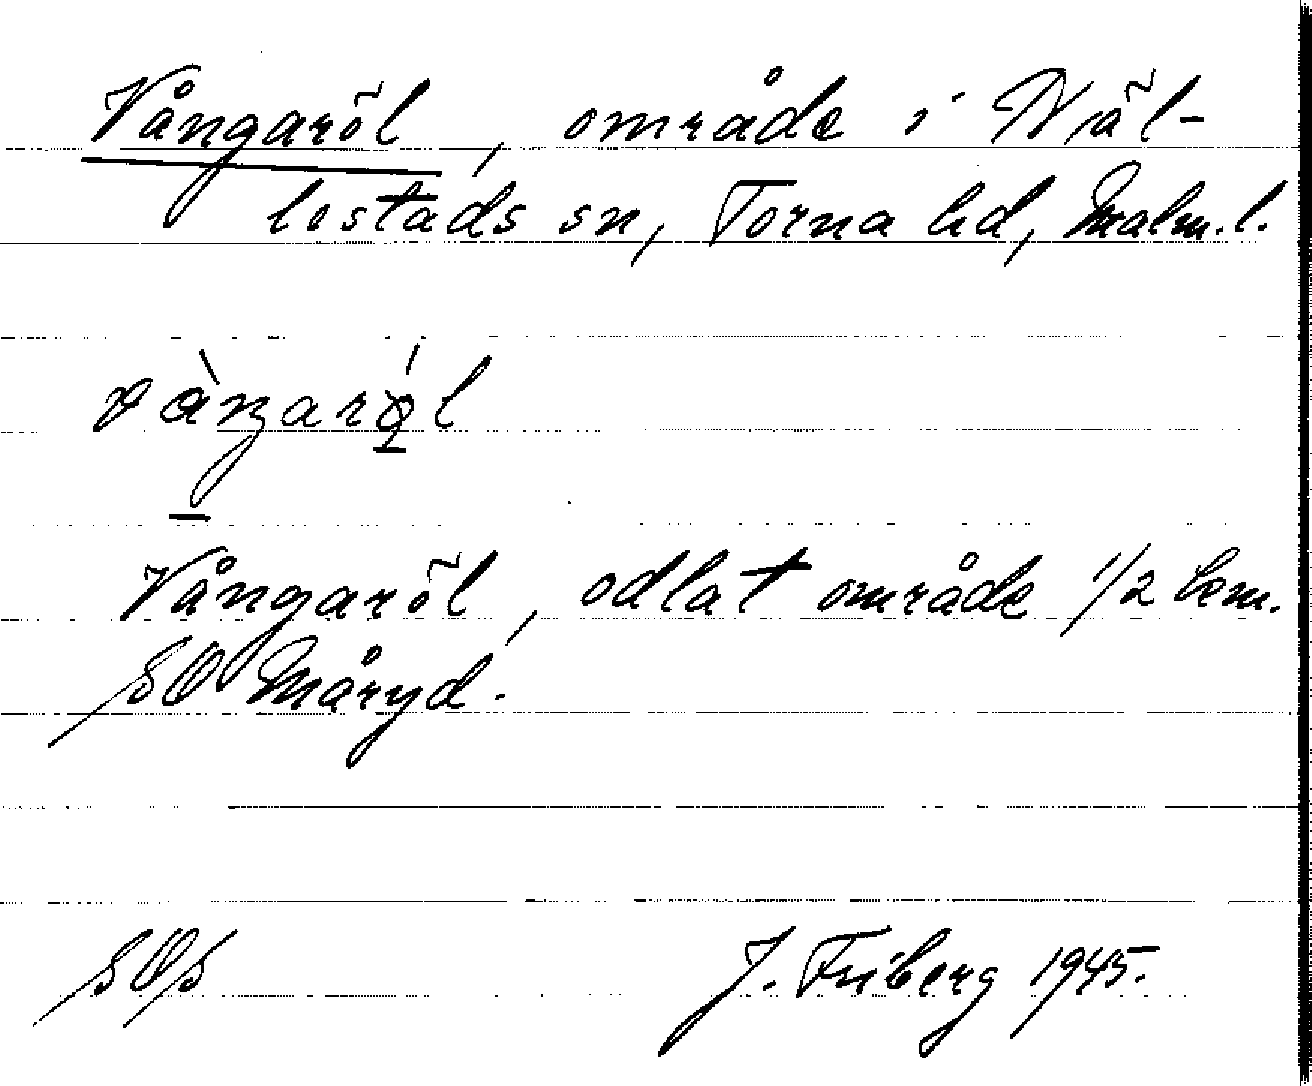 Vångaröl, område i Näl-
lostads sn, Torna hd, Malm.l.
Vångaröl, odlat område 1/2 km.
SO Måryd.
SOS J. Friberg 1945.